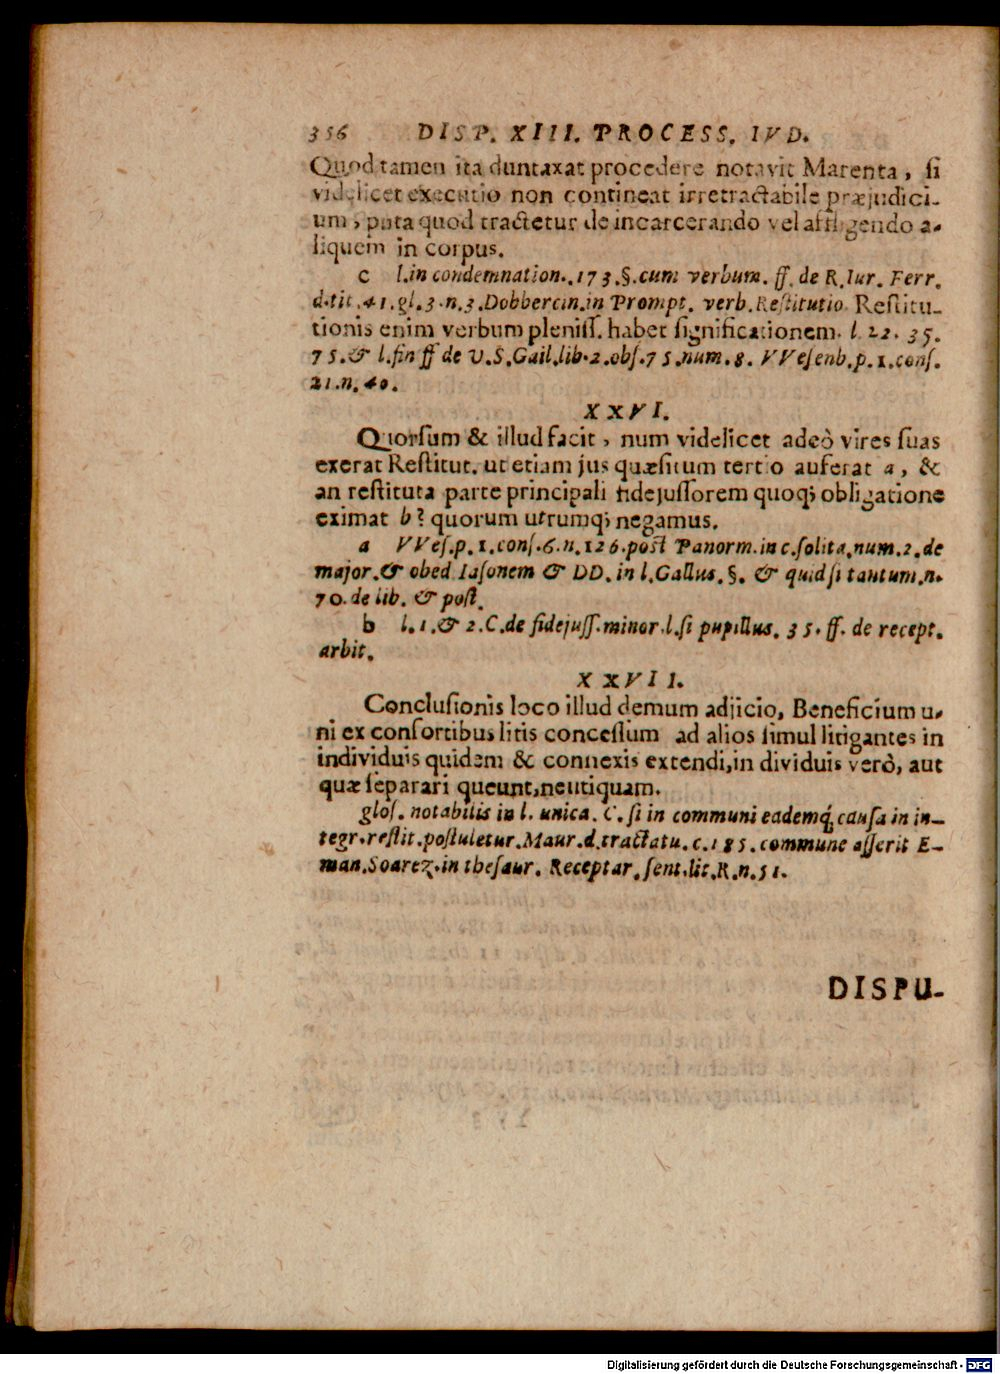 356 DISP. XIII. PROCESS. IVD.
Quod tamen ita duntaxat procedere notavit Marenta, ſi
videlicet executio non contineat irretractabile præjudici-
um, puta quod tractetur de incarcerando vel affligendo a-
liquem in corpus.
c l.in condemnation. 173.§.cum verbum. ff. de R.Iur. Ferr.
d.tit.41.gl.3.n.3.Dobbercin.in Prompt. verb.Reſtitutio. Reſtitu-
tionis enim verbum pleniſſ. habet ſignificationem. l. 22. 35.
75.& l.fin ff de V.S.Gail.lib.2.obſ.75.num.8. VVeſenb.p.1.conſ.
21.n.40.
XXVI.
Quorſum & illud facit, num videlicet adeò vires ſuas
exerat Reſtitut. ut etiam jus quæſitum tertio auferat a, &
an reſtituta parte principali fidejuſſorem quoq; obligatione
eximat b? quorum utrumq; negamus.
a VVeſ.p.1.conſ.6.n.126.poſt Panorm.in c.ſolita.num.2.de
major.& obed Iaſonem & DD.in l.Gallus.§. & quid ſi tantum.n.
70.de lib. & poſt.
b l.1.& 2.C.de fidejuſſ.minor.l.ſi pupillus. 35. ff. de recept.
arbit.
XXVII.
Concluſionis loco illud demum adjicio, Beneficium u-
ni ex conſortibus litis conceſſum ad alios ſimul litigantes in
individuis quidem & connexis extendi, in dividuis verò, aut
quæ ſeparari queunt, neutiquam.
gloſ. notabilis in l. unica. C. ſi in communi eademq; cauſa in in-
tegr.reſtit.poſtuletur.Maur.d.tractatu.c.185.commune aſſerit E-
man.Soarez.in theſaur. Receptar.ſent.lit.R.n.51.
DISPU-
Digitalisierung gefördert durch die Deutsche Forschungsgemeinschaft - DFG